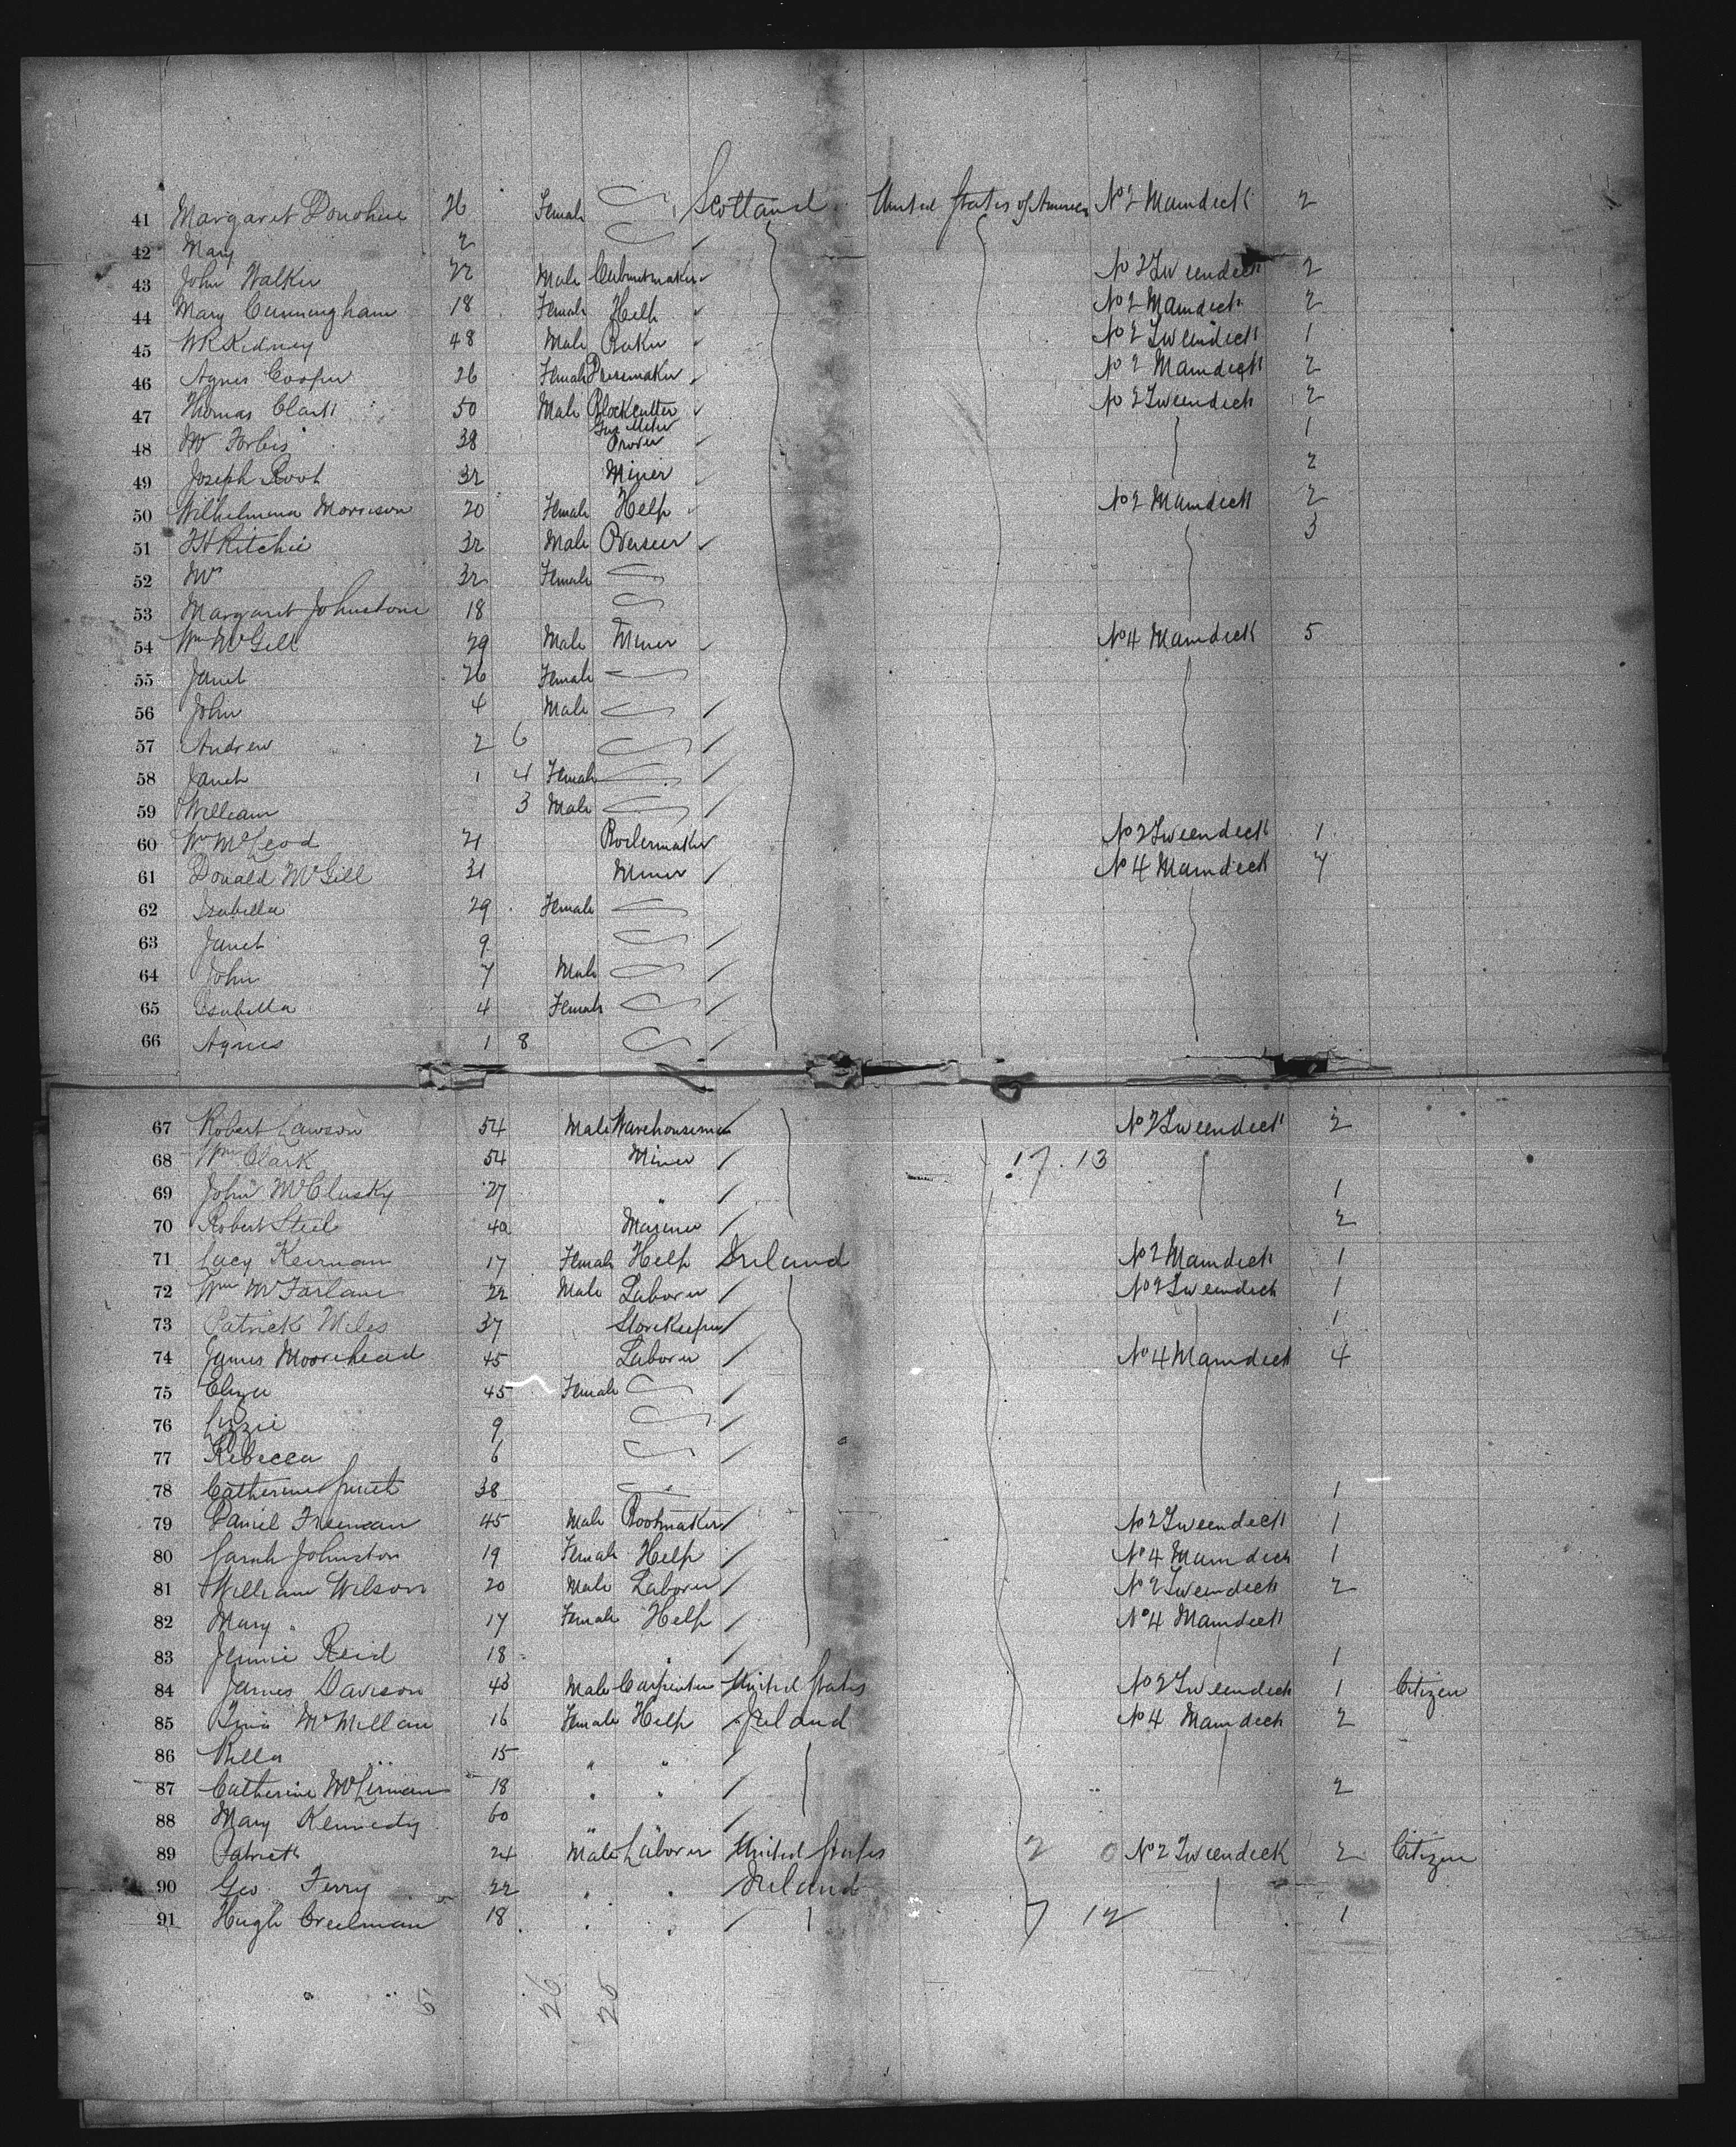 41 Margaret Donohue 26 Female Scotland United States of America No 2 Maindeck 2
42 Mary 2
43 John Walker 22 Male Cabinetmaker No 2 Tweendeck 2
44 Mary Cunningham 18 Female Help No 2 Maindeck 2
45 W R Kidney 48 Male Baker No 2 Tweendeck 1
46 Agnes Cooper 26 Female Dressmaker No 2 Maindeck 2
47 Thomas Clark 50 Male Blockcutter No 2 Tweendeck 2
48 Forbes 38 Gas Meter Prover 1
49 Joseph Root 32 Miner 2
50 Wilhelmina Morrison 20 Female Help No 2 Maindeck 2
51 Ritchie 32 Male Overseer 3
52 Mrs 32 Female
53 Margaret Johnstone 18
54 Wm McGill 29 Male Miner No 4 Maindeck 5
55 Janet 26 Female
56 John 4 Male
57 Andrew 2 6
58 Janet 1 4 Female
59 William 3 Male
60 Wm McLeod 21 Boilermaker No 2 Tweendeck 1
61 Donald McGill 31 Miner No 4 Maindeck 7
62 Isabella 29 Female
63 Janet 9
64 John 7 Male
65 Isabella 4 Female
66 Agnes 1 8
67 Robert Lawson 54 Male Warehouseman No 2 Tweendeck 2
68 Wm Clark 54 Miner 17.13
69 John McClusky 27 " 1
70 Robert Steel 40 Mariner 2
71 Lucy Keirnan 17 Female Help Ireland No 2 Maindeck 1
72 Wm McFarlane 22 Male Laborer No 2 Tweendeck 1
73 Patrick Miles 37 Storekeeper 1
74 James Moorehead 45 Laborer No 4 Maindeck 4
75 Eliza 45 Female
76 Lizzie 9
77 Rebecca 6
78 Catherine Smith 38 1
79 Daniel Freeman 45 Male Bootmaker No 2 Tweendeck 1
80 Sarah Johnston 19 Female Help No 4 Maindeck 1
81 William Wilson 20 Male Laborer No 2 Tweendeck 2
82 Mary " 17 Female Help No 4 Maindeck
83 Jennie Reid 18 " 1
84 James Davison 43 Male Carpenter United States No 2 Tweendeck 1 Citizen
85 Tina McMillan 16 Female Help Ireland No 4 Maindeck 2
86 Bella " 15 " "
87 Catherine 18 " " 2
88 Mary Kennedy 60 " "
89 Patrick 24 Male Laborer United States 2 0 No 2 Tweendeck 2 Citizen
90 Geo Ferry 22 " " Ireland
91 Hugh Creelman 18 " " 7 12 1
5 26 25